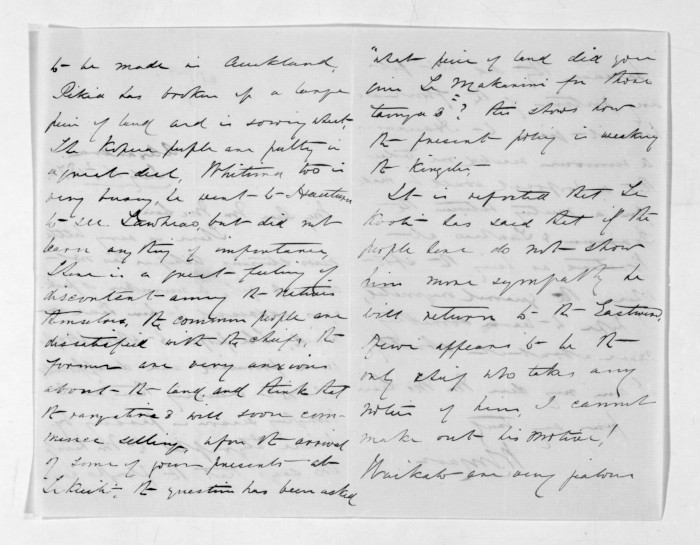 to be made in Auckland,
Rihia has broken up a large
piece of land and is sowing wheat,
The Kopua people are putting in
a great deal, Whitiora too is
very busy, he went to Hauturu
to see Tawhiao, but did not
learn anything of importance,
There is a great feeling of
discontent among the natives
themselves, the common people are
dissatisfied with the chiefs, the
former are very anxious
about the land, and think that
the rangatiras will soon com-
mence selling, upon the arrival
of some of your presents at
Te Kuiti, the question has been asked
"What piece of land did you
give Te Makarini for those
taonga's"? this shows how
the present policy is weakening
the Kingites,
It is reported that Te
Kooti has said that if the
people here do not show
him more sympathy he
will return to the Eastward,
Rewi appears to be the
only chief who takes any
notice of him, I cannot
make out his motive!
Waikato are very jealous